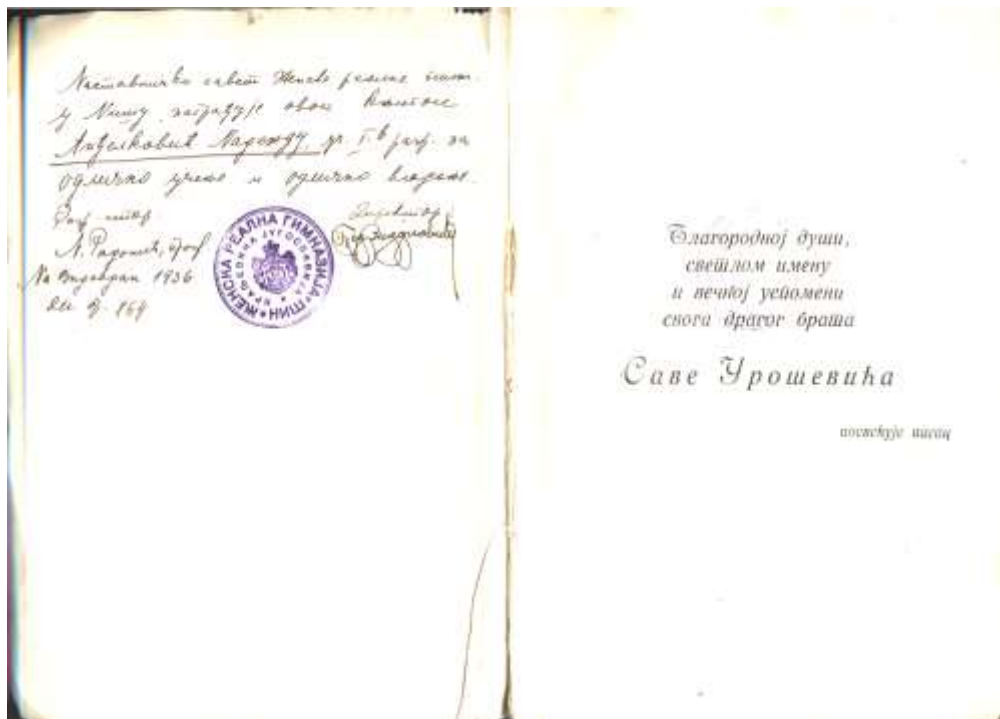 Наставнички савет Женске реалне гимн.
у Нишу награђује овом књигом
Анђелковић Надежду уч I.в разр. за
одлично учење и одлично владање.
Раз. стар.
Директор
Н. Радонић, проф
На Видовдан 1936
ЖЕНСКА РЕАЛНА ГИМНАЗИЈА • НИШ •
КРАЉЕВИНА ЈУГОСЛАВИЈА
Благородној души,
светлом имену
и вечној успомени
свога драгог брата
Саве Урошевића
посвећује писац